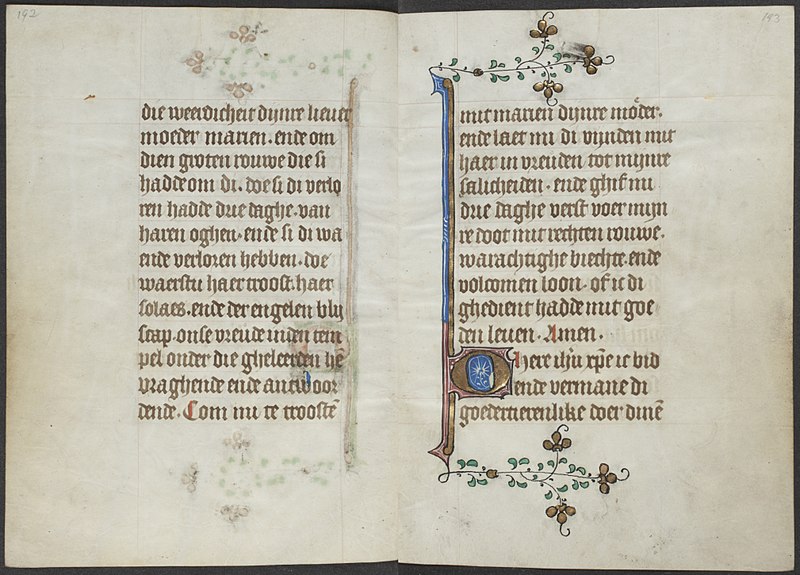 192
die weerdicheit dijnre lieuer
moeder marien. ende om
dien groten rouwe die si
hadde om di. doe si di verlo
ren hadde drie daghe. van
haren oghen. ende si di wa
ende verloren hebben. doe
waerstu haer troost. haer
solaes. ende der engelen bly
scap. onse vreude inden tem
pel onder die gheleerden he
vraghende ende antwoor
dende. Com mi te troostē
193
mit marien dijnre moder.
ende laet mi di vijnden mit
haer in vreuden tot mijnre
salicheiden. ende ghif mi
drie daghe verst voer mijn
re doot mit rechten rouwe.
warachtighe biechte. ende
volcomen loon. of ic di
ghedient hadde mit goe
den leuen. Amen.
O here ihū xp̄e ic bid
ende vermane di
goedertierenlike doer dinē